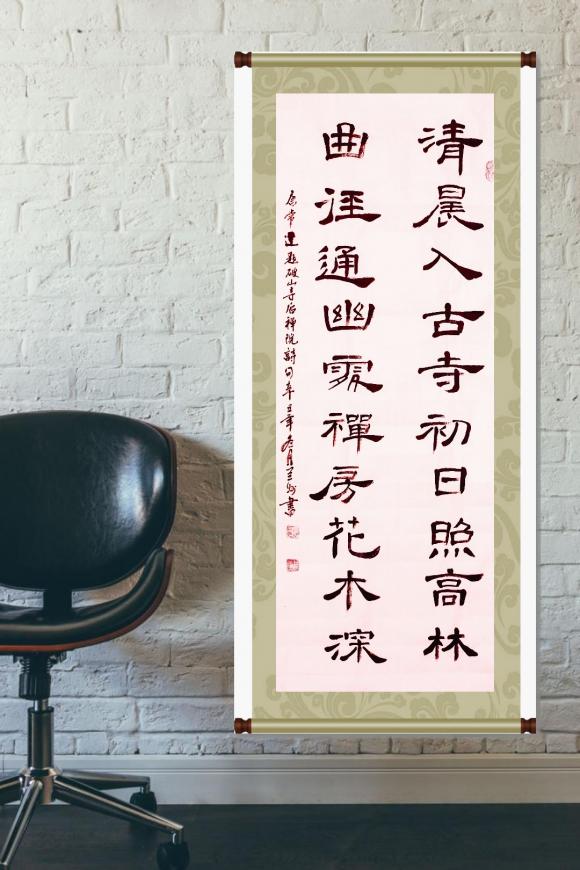 清晨入古寺初日照高林
曲徑通幽處禪房花木深
唐常建題破山寺后禪院詩句辛丑年冬月書